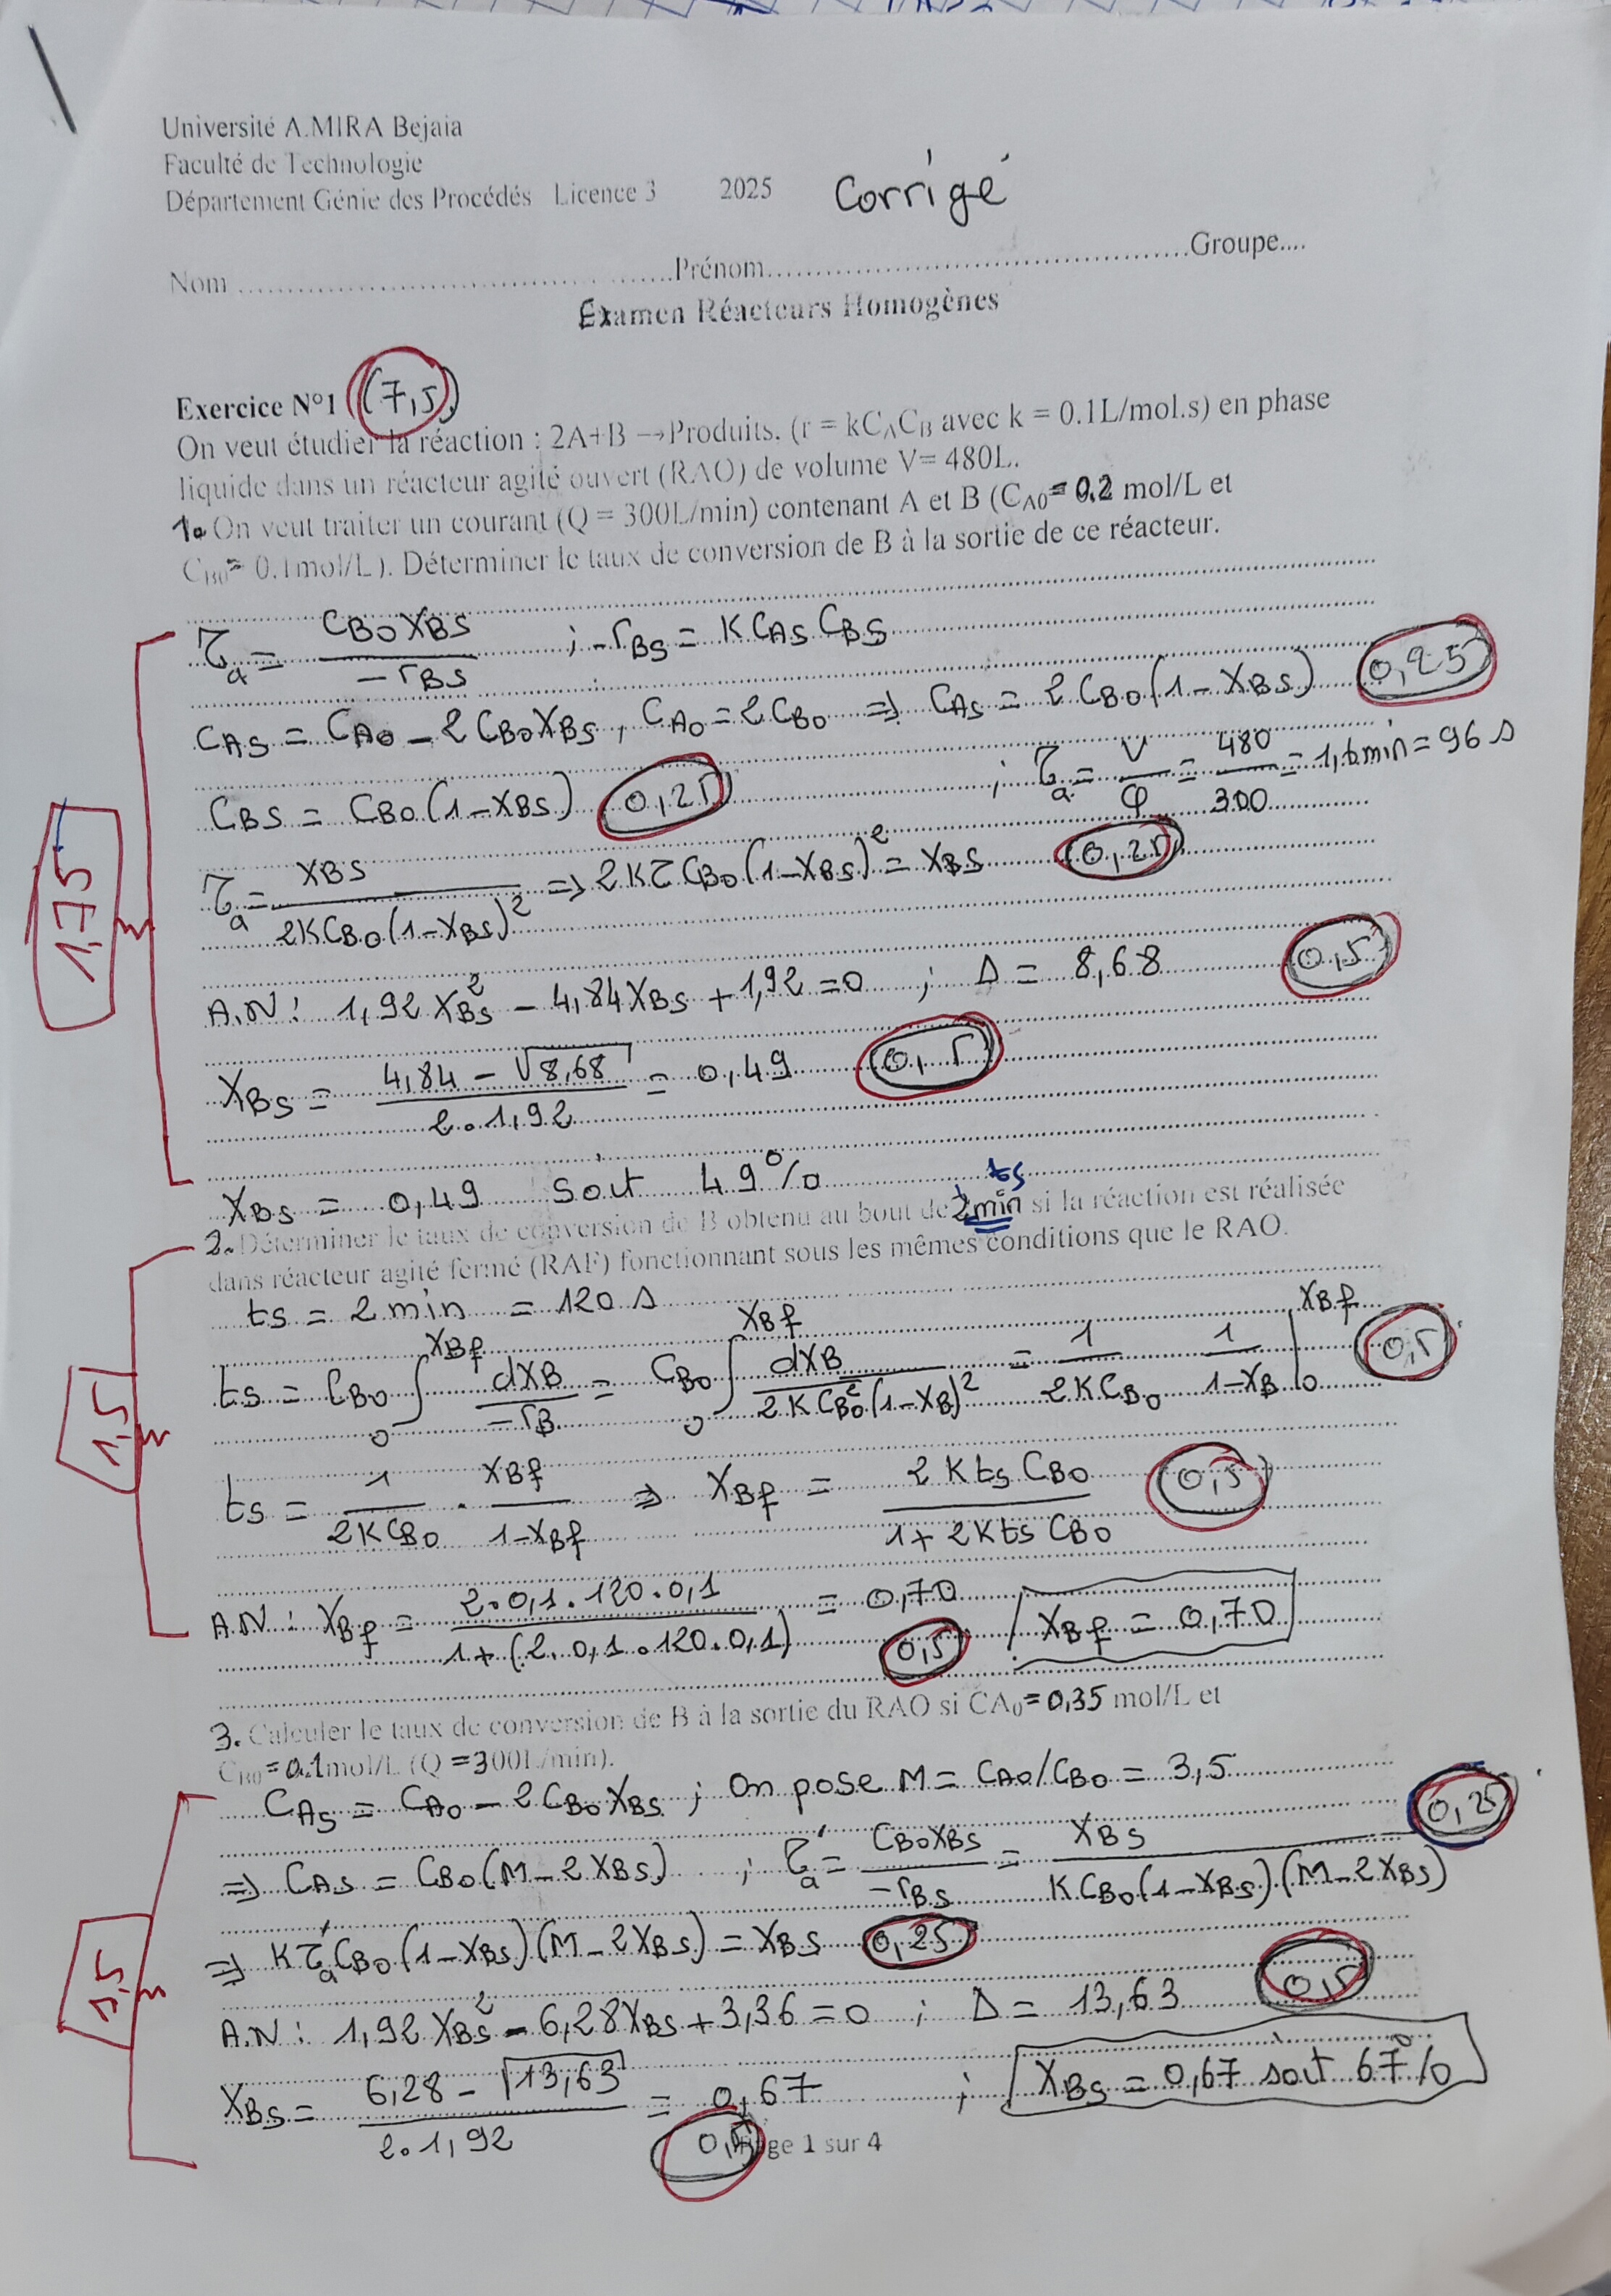 Université A.MIRA Bejaia
Faculté de Technologie
Département Génie des Procédés Licence 3 2025 Corrigé
Nom ........ Prénom ........ Groupe....
Examen Réacteurs Homogènes
Exercice N°1 (7,5)
On veut étudier la réaction : 2A+B →Produits. (r = kC_AC_B avec k = 0.1L/mol.s) en phase
liquide dans un réacteur agité ouvert (RAO) de volume V= 480L.
1. On veut traiter un courant (Q = 300L/min) contenant A et B (C_A0= 0,2 mol/L et
C_B0= 0.1mol/L ). Déterminer le taux de conversion de B à la sortie de ce réacteur.
1,75
τ_a = C_B0 X_BS / -r_BS ; -r_BS = K C_AS C_BS
C_AS = C_A0 - 2 C_B0 X_BS , C_A0 = 2 C_B0 ⇒ C_AS = 2 C_B0 (1-X_BS) 0,25
C_BS = C_B0 (1-X_BS) 0,25 ; τ_a = V/φ = 480/300 = 1,6 min = 96 s
τ_a = X_BS / 2K C_B0 (1-X_BS)² ⇒ 2Kτ C_B0 (1-X_BS)² = X_BS 0,25
A.N : 1,92 X_BS² - 4,84 X_BS + 1,92 = 0 ; Δ = 8,68 0,5
X_BS = (4,84 - √8,68) / 2.1,92 = 0,49 0,5
X_BS = 0,49 soit 49 %
ts
2. Déterminer le taux de conversion de B obtenu au bout de 2min si la réaction est réalisée
dans réacteur agité fermé (RAF) fonctionnant sous les mêmes conditions que le RAO.
1,5
ts = 2 min = 120 s
ts = C_B0 ∫₀^X_Bf dX_B / -r_B = C_B0 ∫₀^X_Bf dX_B / 2K C_B0² (1-X_B)² = 1 / 2K C_B0 1 / 1-X_B |₀^X_Bf 0,5
ts = 1 / 2K C_B0 . X_Bf / 1-X_Bf ⇒ X_Bf = 2 K ts C_B0 / 1+ 2K ts C_B0 0,5
A.N : X_Bf = 2.0,1.120.0,1 / 1+(2.0,1.120.0,1) = 0,70 0,5 X_Bf = 0,70
3. Calculer le taux de conversion de B à la sortie du RAO si CA_0= 0,35 mol/L et
C_B0= 0.1mol/L (Q =300L/min).
1,5
C_AS = C_A0 - 2 C_B0 X_BS ; On pose M = C_A0/C_B0 = 3,5
⇒ C_AS = C_B0 (M-2X_BS) ; τ'_a = C_B0 X_BS / -r_BS = X_BS / K C_B0 (1-X_BS)(M-2X_BS) 0,25
⇒ K τ'_a C_B0 (1-X_BS)(M-2X_BS) = X_BS 0,25
A.N : 1,92 X_BS² - 6,28 X_BS + 3,36 = 0 ; Δ = 13,63 0,5
X_BS = (6,28 - √13,63) / 2.1,92 = 0,67 ; X_BS = 0,67 soit 67 %
0,5 Page 1 sur 4